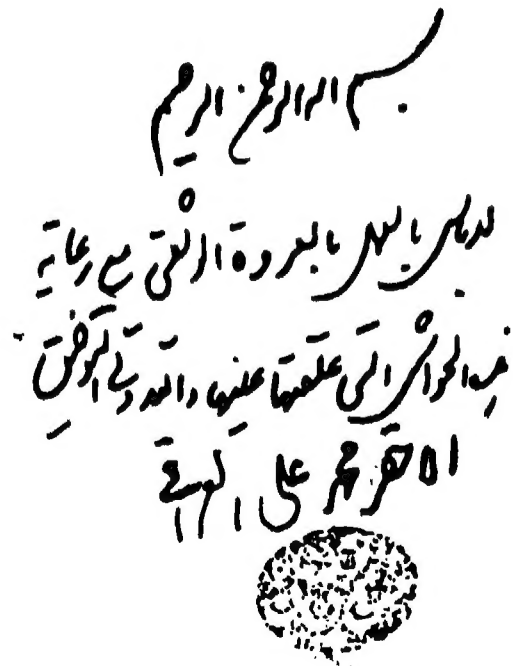 بسم الله الرحمن الرحيم
لا بأس بالعمل بالعروة الوثقى مع رعاية
هذه الحواشي التي علقتها عليها والله ولي التوفيق
الاحقر محمد علي العراقي